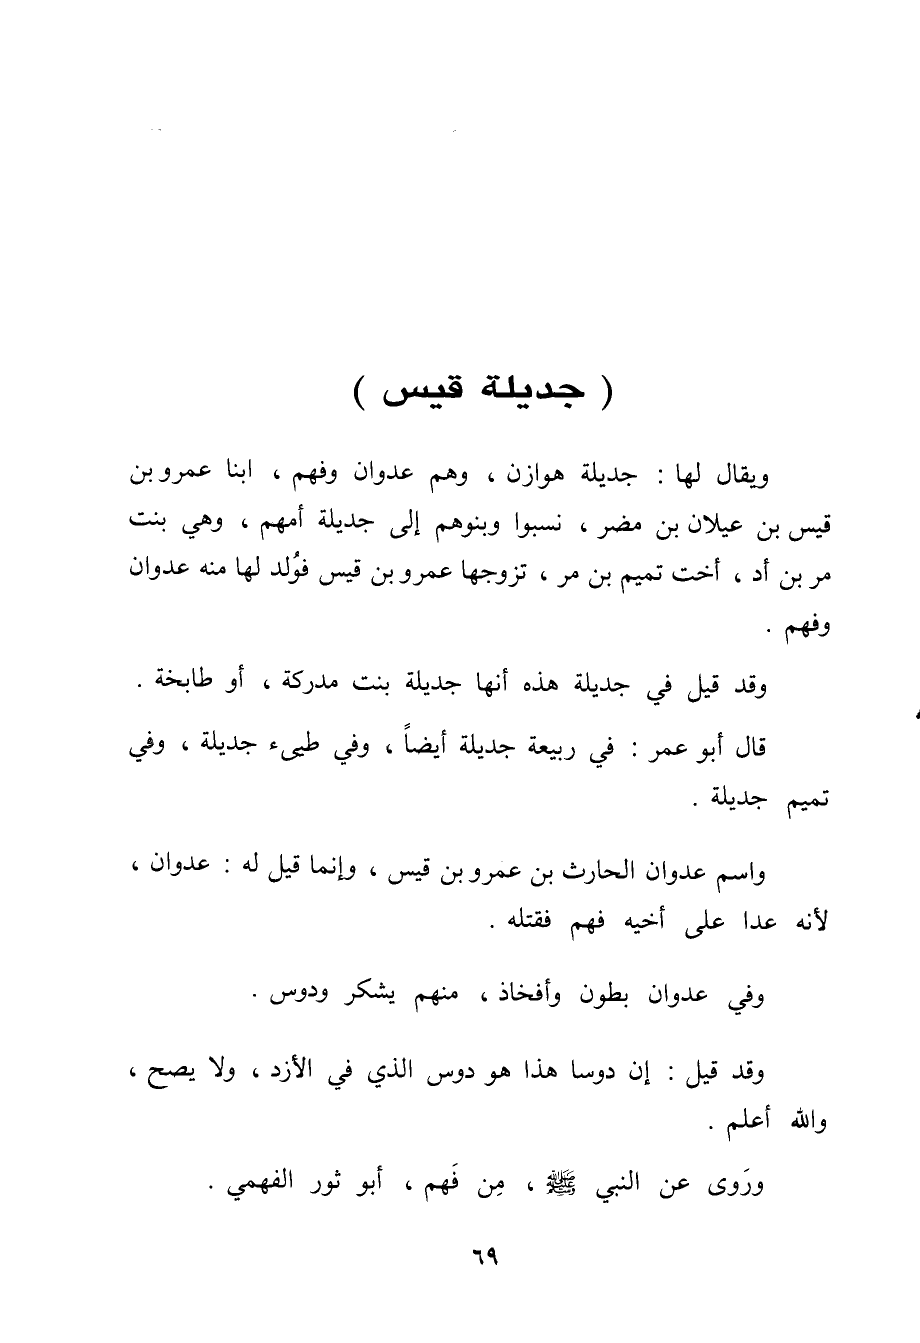 ( جديلة قيس )
ويقال لها : جديلة هوازن ، وهم عدوان وفهم ، ابنا عمرو بن
قيس بن عيلان بن مضر ، نسبوا وبنوهم إلى جديلة أمهم ، وهي بنت
مر بن أد ، أخت تميم بن مر ، تزوجها عمرو بن قيس فوُلد لها منه عدوان
وفهم .
وقد قيل في جديلة هذه أنها جديلة بنت مدركة ، أو طابخة .
قال أبو عمر : في ربيعة جديلة أيضاً ، وفي طيىء جديلة ، وفي
تميم جديلة .
واسم عدوان الحارث بن عمرو بن قيس ، وإنما قيل له : عدوان ،
لأنه عدا على أخيه فهم فقتله .
وفي عدوان بطون وأفخاذ ، منهم يشكر ودوس .
وقد قيل : إن دوسا هذا هو دوس الذي في الأزد ، ولا يصح ،
والله أعلم .
ورَوى عن النبي ﷺ ، مِن فَهم ، أبو ثور الفهمي .
٦٩